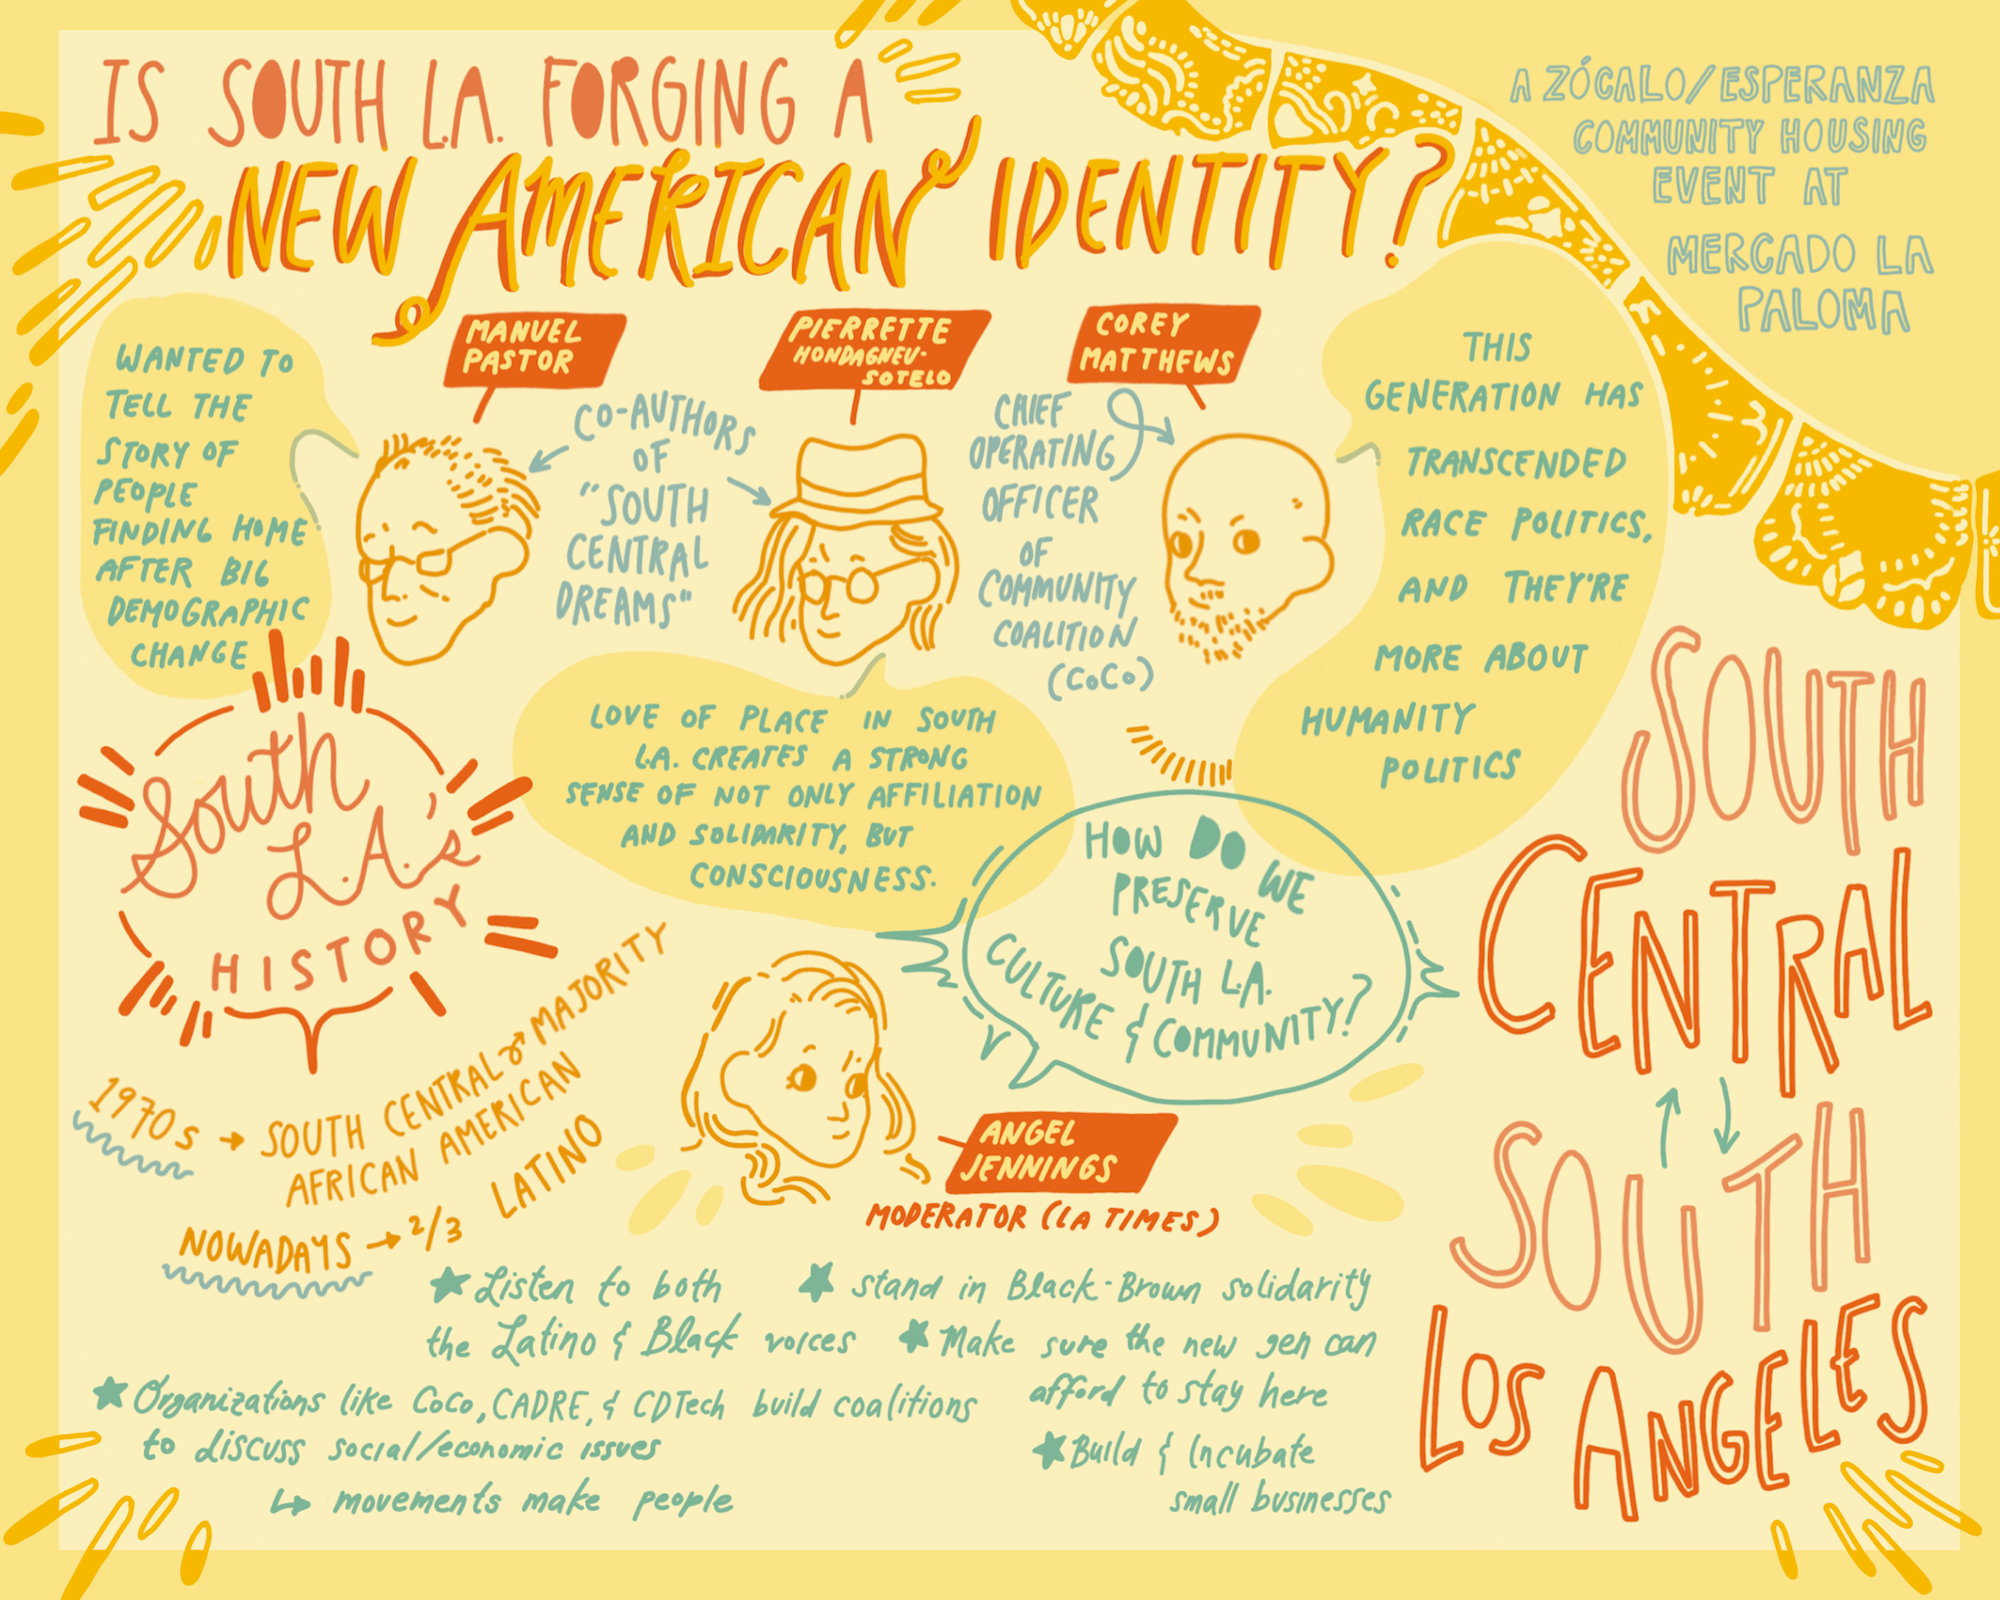 IS SOUTH L.A. FORGING A
NEW AMERICAN IDENTITY?
A ZÓCALO/ESPERANZA
COMMUNITY HOUSING
EVENT AT
MERCADO LA
PALOMA
WANTED TO
TELL THE
STORY OF
PEOPLE
FINDING HOME
AFTER BIG
DEMOGRAPHIC
CHANGE
MANUEL
PASTOR
CO-AUTHORS
OF
"SOUTH
CENTRAL
DREAMS"
PIERRETTE
HONDAGNEU-
SOTELO
LOVE OF PLACE IN SOUTH
L.A. CREATES A STRONG
SENSE OF NOT ONLY AFFILIATION
AND SOLIDARITY, BUT
CONSCIOUSNESS.
COREY
MATTHEWS
CHIEF
OPERATING
OFFICER
OF
COMMUNITY
COALITION
(COCO)
THIS
GENERATION HAS
TRANSCENDED
RACE POLITICS,
AND THEY'RE
MORE ABOUT
HUMANITY
POLITICS
South
L.A.'s
HISTORY
1970s → SOUTH CENTRAL → MAJORITY
AFRICAN AMERICAN
NOWADAYS → 2/3 LATINO
HOW DO WE
PRESERVE
SOUTH L.A.
CULTURE & COMMUNITY?
ANGEL
JENNINGS
MODERATOR (LA TIMES)
SOUTH
CENTRAL
SOUTH
LOS ANGELES
★ Listen to both
the Latino & Black voices
★ stand in Black-Brown solidarity
★ Make sure the new gen can
afford to stay here
★ Organizations like CoCo, CADRE, & CDTech build coalitions
to discuss social/economic issues
↳ movements make people
★ Build & Incubate
small businesses